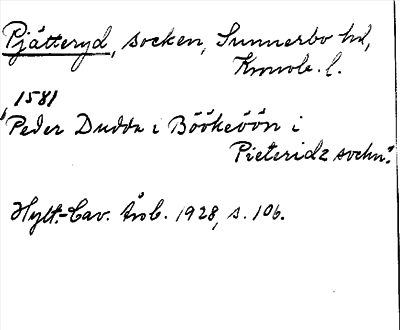 Pjätteryd, socken, Sunnerbo hd,
Kronob. l.
1581
"Peder Dudda i Böökeöön i
Pieteridz sochn."
Hylt.-Cav. årsb. 1928, s. 106.